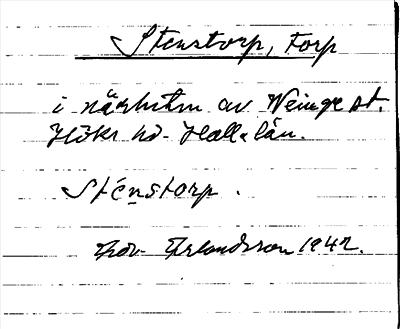 Stenstorp, torp
i närheten av Veinge st.
Höks hd. Hall. län.
Sténstorp.
Erlandsson 1942.